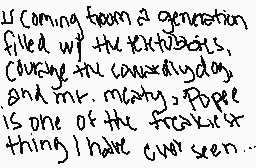 coming from a generation
filled w/ the teletubbies,
courage the cowardly dog,
and mr. meaty, Popee
is one of the freakiest
thing I have ever seen...